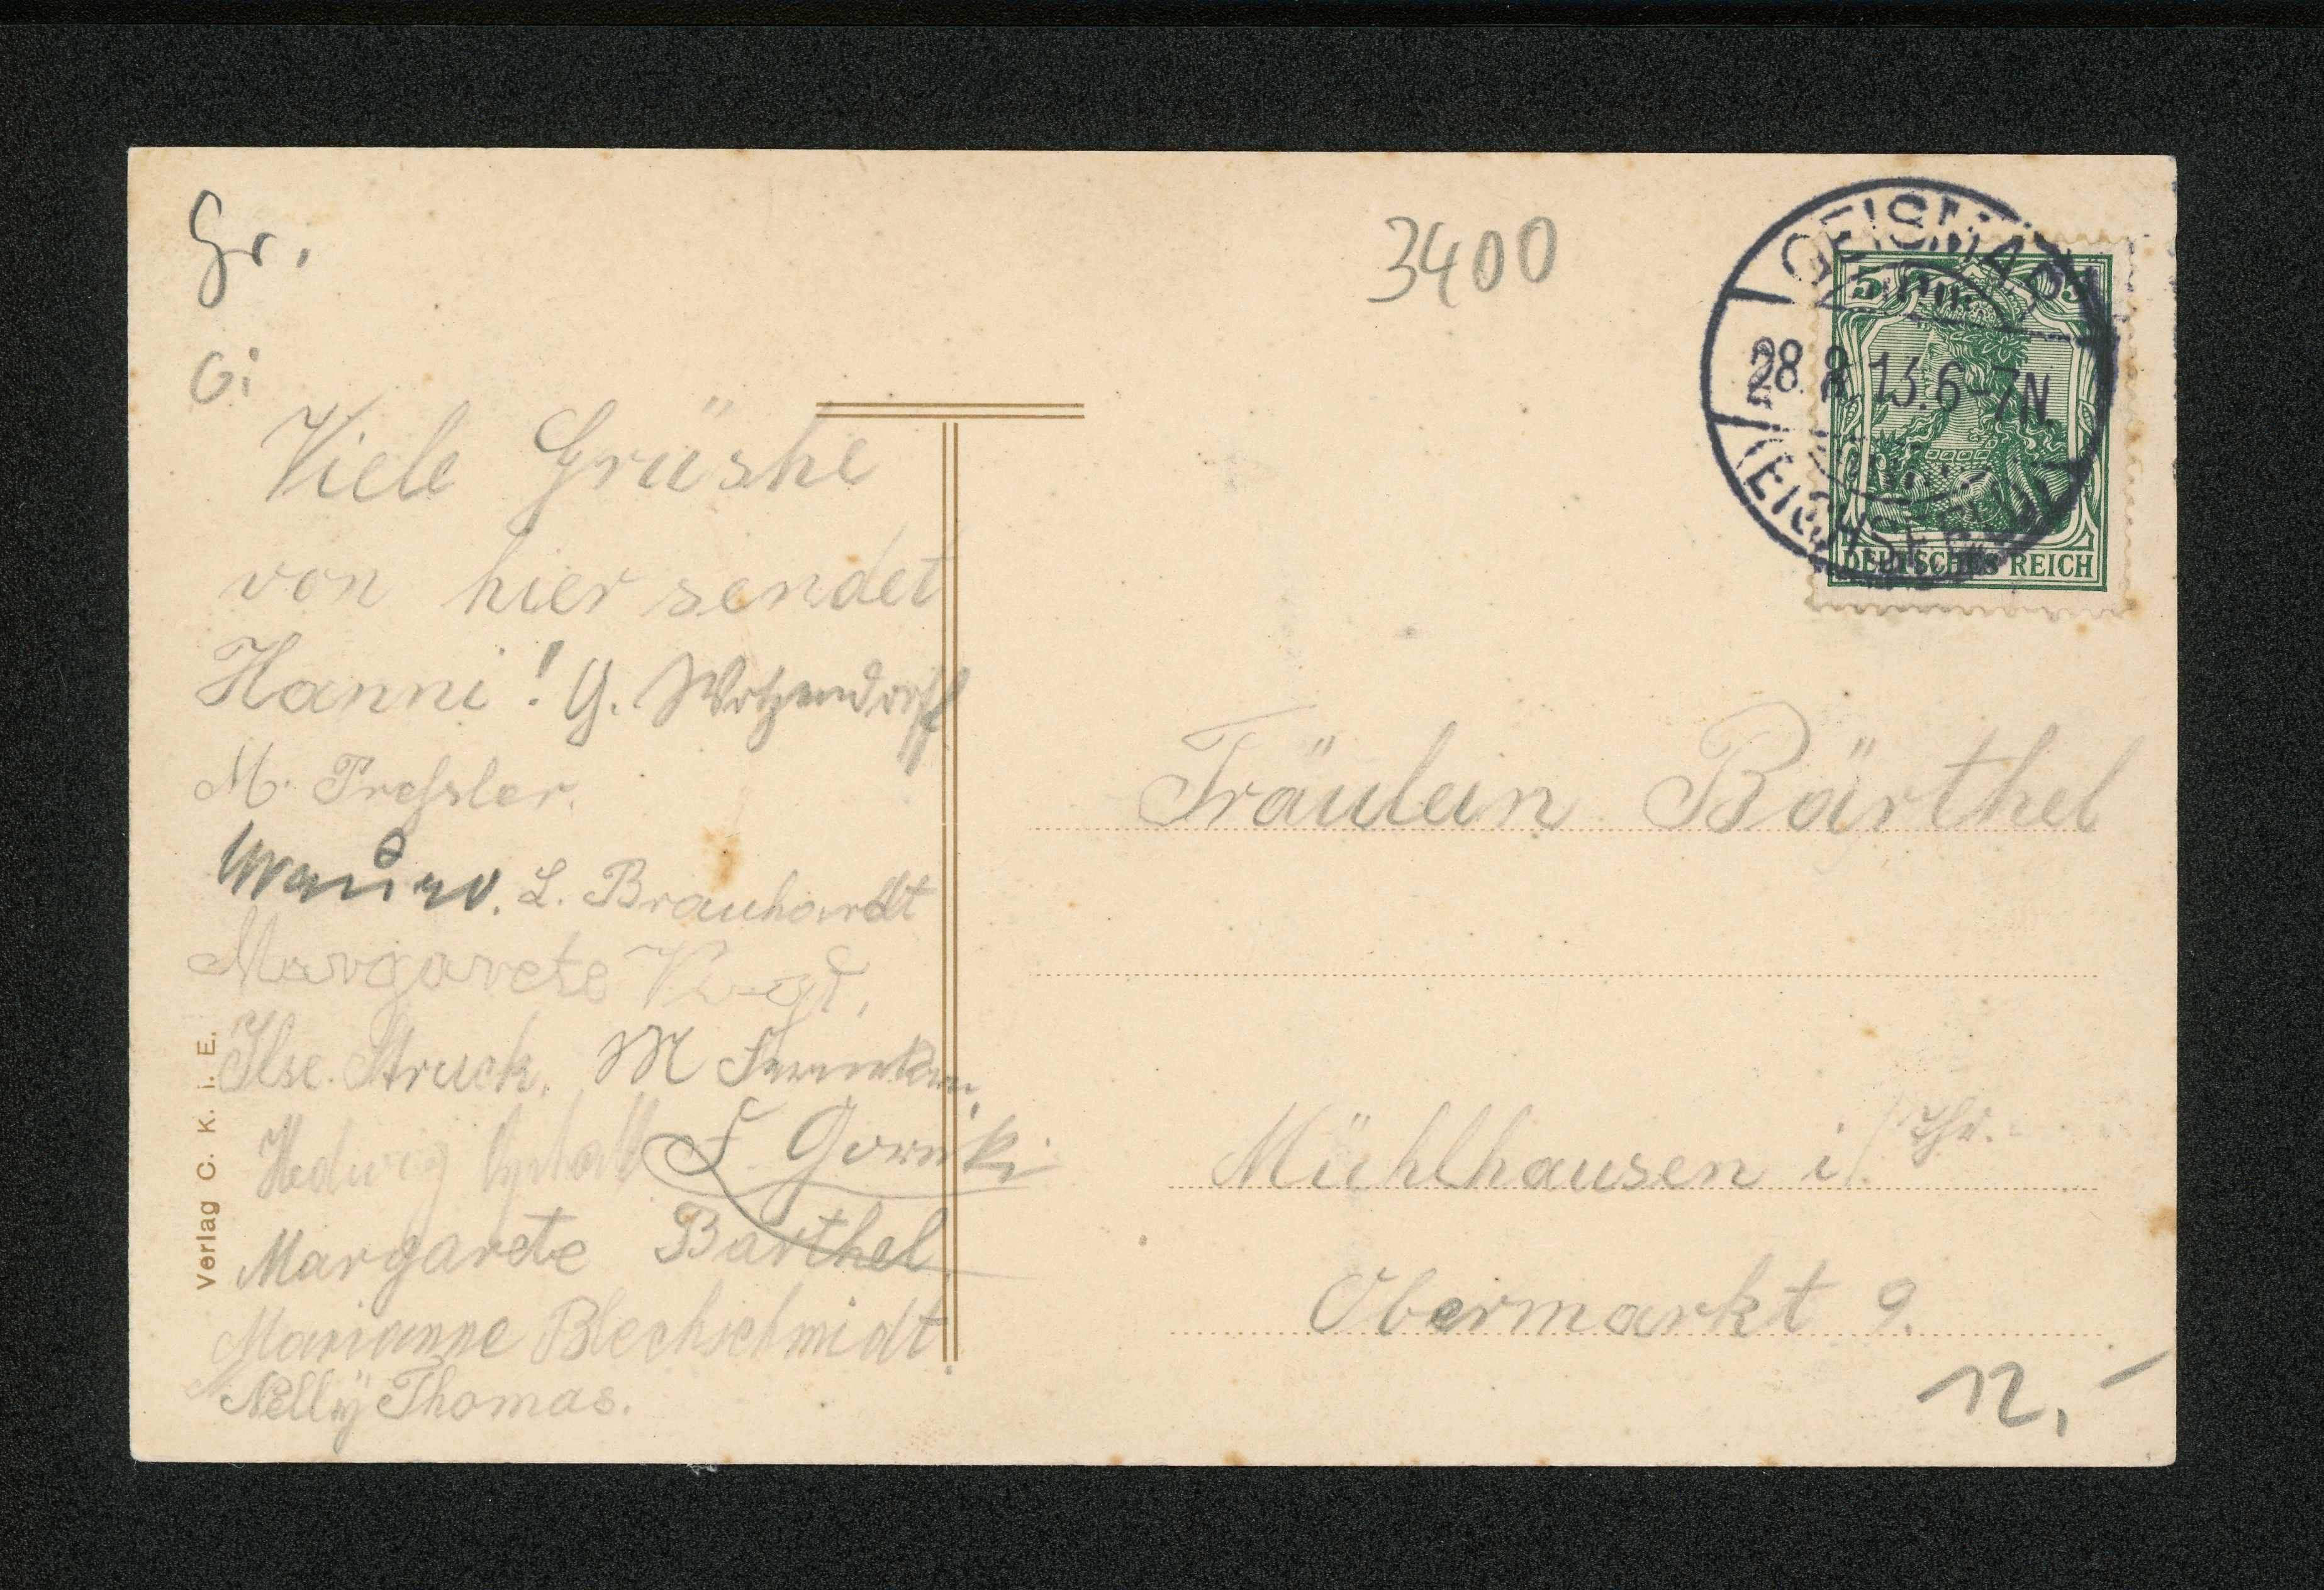 Gr.
Gi
3400
GEISMAR
28.8.13.6-7N.
(EICHSFELD)
5 5
DEUTSCHES REICH
Viele Grüshe
von hier sendet
Hanni! G. Wotzendorff
M. Preſsler.
L. Brauhardt
Margarete Vogt.
Ilse Struck. M
Hedwig F. Gornicki
Margarete Barthel
Marianne Blechschmidt.
Nelly Thomas.
Verlag C. K. i. E.
Fräulein Bärthel
Mühlhausen i/ Thr.
Obermarkt 9.
12,-